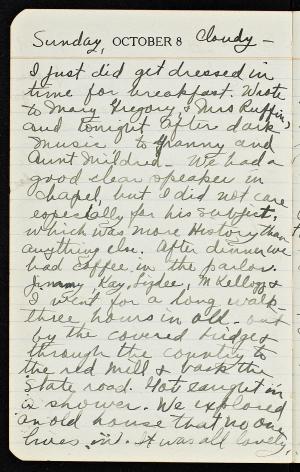 Sunday, OCTOBER 8 Cloudy -
I just did get dressed in
time for breakfast. Wrote
to Mary Gregory, & Mrs Ruffin,
and tonight after dark
music to Granny and
Aunt Mildred - We had a
good clear speaker in
chapel, but I did not care
especially for his subject,
which was more History than
anything else. After dinner we
had coffee in the parlor.
Kay, M Kellogg &
I went for a long walk -
three hours in all, out
by the covered bridge &
through the country to
the red mill & back the
State road. Got caught in
a shower. We explored
an old house that no one
lives in. It was all lovely,